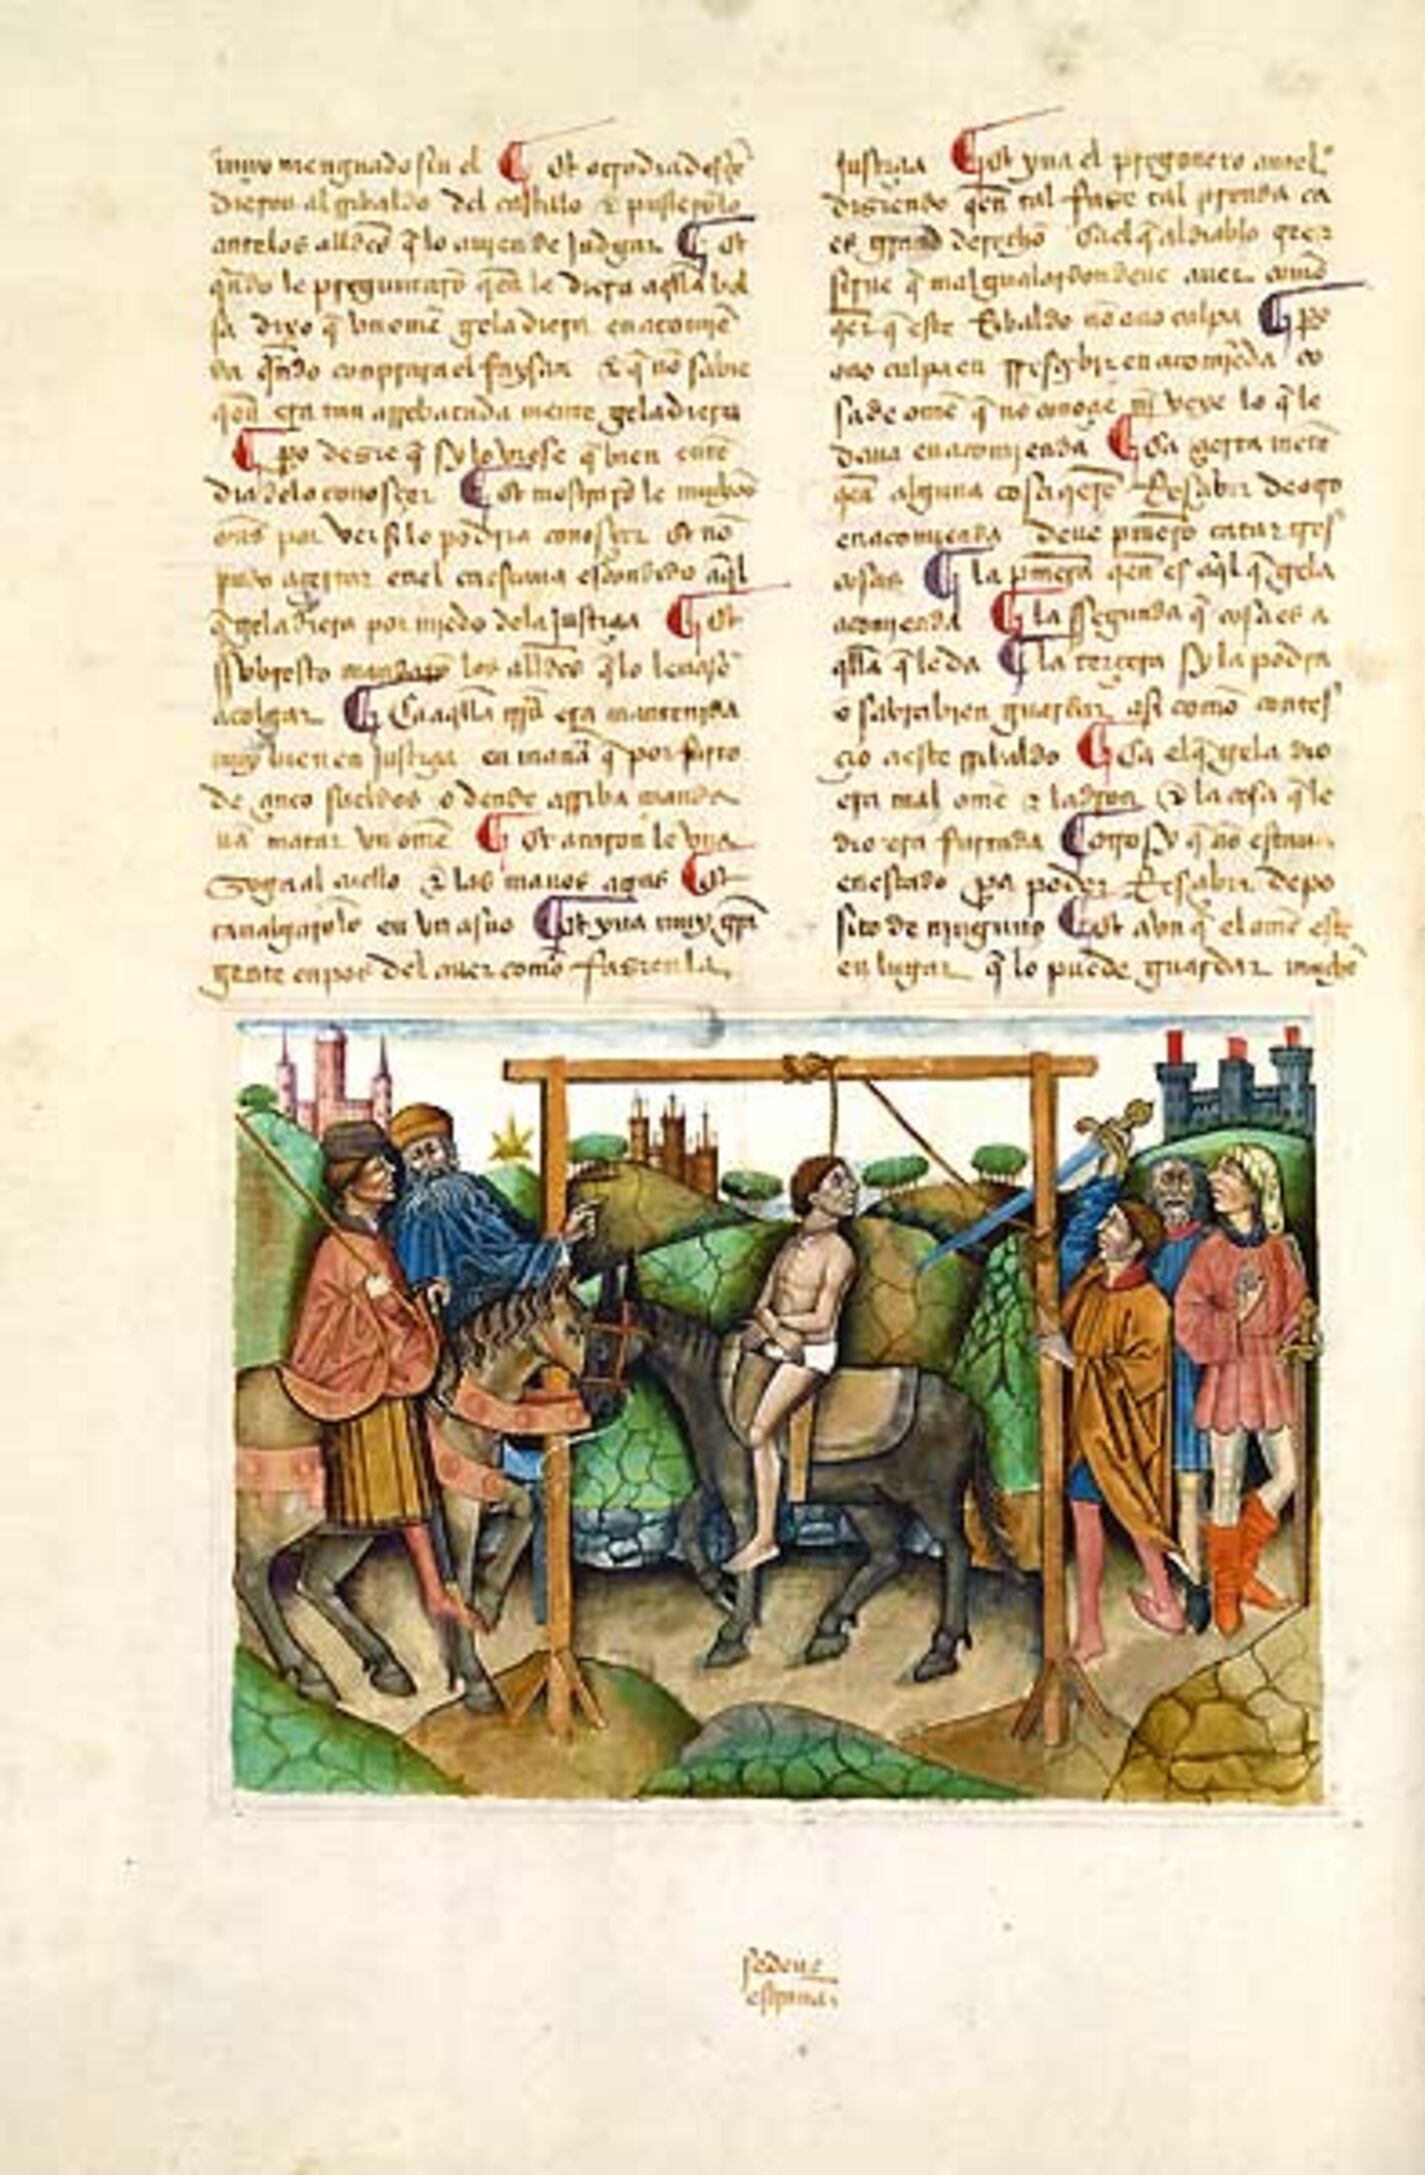 muy menguado sin el ¶ Et otro dia desçẽ
dieron al rribaldo del castillo & pusieronlo
ante los allds̃ q̃ lo auien de judgar ¶ Et
q̃ndo le preguntarõ q̃en le diera aq̃lla bol
sa dixo q̃ vn omẽ gela diera en acomiẽ
da q̃ndo conprara el faysan & q̃ nõ sabie
q̃en era tan arrebatada mente gela diera
¶ po dezie q̃ sy lo viese q̃ bien entẽ
dia de lo conosçer ¶ Et mostrarõ le muchos
oms̃ por ver si lo podria conosçer Et nõ
pudo açertar en el ca estaua escondido aq̃l
q̃ gela diera por miedo dela justiçia ¶ Et
sobresto mandarõ los allds̃ q̃ lo leuasẽ
a colgar ¶ Ca aq̃lla trrã era mantenida
muy bien en justiçia en manã q̃ por furto
de çinco sueldos o dende arriba manda
uã matar vn omẽ ¶ Et ataron le vna
soga al cuello & las manos atras ¶ Et
caualgarõlo en vn asno ¶ Et yua muy grã
gente en pos del a uer como fazien la
justiçia ¶ Et yua el pregonero antel
diziendo q̃en tal faze tal prenda ca
es grand derecho Ca el q̃ al diablo cree &
sirue q̃ mal gualardon deue auer comõ
q̃er q̃ este Ribaldo nõ ouo culpa ¶ po
ouo culpa en rresçebir en acomiẽda co
sa de omẽ q̃ nõ conoçe nĩ veye lo q̃ le
daua en acomienda ¶ Ca çierta mẽte
q̃en alguna cosa q̃ere Resçebir de otro
en acomienda deue prĩmero catar tres
cosas ¶ la prĩmera q̃en es aq̃l q̃ gela
acomienda ¶ la ssegunda q̃ cosa es a
q̃lla q̃ le da ¶ la terçera sy la podra
o sabra bien guardar asi como contes
çio a este rribaldo ¶ Ca el q̃ gela dio
era mal omẽ & ladron & la cosa q̃ le
dio era furtada ¶ otro sy q̃ nõ estaua
en estado pa poder Resçebir depo
sito de ninguno ¶ Et avn q̃ el omẽ este
en lugar q̃ lo puede guardar mucho
se deue
esquiuar